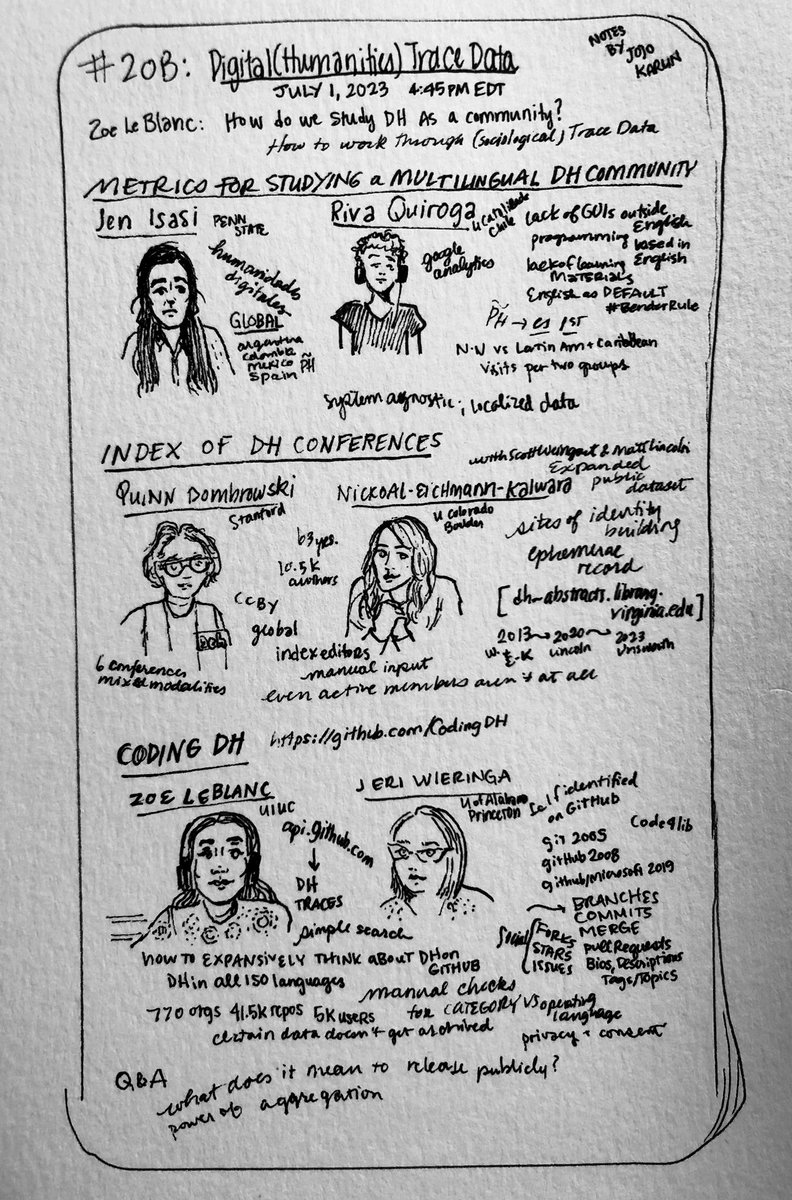 #20B: Digital (Humanities) Trace Data
NOTES
BY JOJO
KARLIN
JULY 1, 2023 4:45 PM EDT
Zoe LeBlanc: How do we study DH as a community?
How to work through (sociological) Trace Data
METRICS FOR STUDYING a MULTILINGUAL DH COMMUNITY
Jen Isasi
PENN
STATE
humanidades
digitales
GLOBAL
argentina
colombia
mexico
Spain PH
Riva Quiroga
Chile
google
analytics
lack of GUIs outside
English
programming based in
English
lack of learning
MATERIALS
English as DEFAULT
#BenderRule
PH → es 1ST
N.W vs Latin Am + Caribbean
visits per two groups
system agnostic; localized data
INDEX OF DH CONFERENCES
with Scott Weingart & Matt Lincoln
Expanded
public
dataset
QUINN DOMBROWSKI
Stanford
NICKOAL-EICHMANN-KALWARA
U Colorado
Boulder
63 yrs.
10.5K
authors
CCBY
global
index editors
manual input
even active members aren't at all
6 conferences
mixed modalities
sites of identity
building
ephemeral
record
[dh-abstracts.library.
virginia.edu]
2013 → 2020 → 2023
W. E-K Lincoln Unsworth
CODING DH https://github.com/CodingDH
ZOE LEBLANC
UIUC
api.github.com
↓
DH
TRACES
simple search
JERI WIERINGA
U of Alabama
Princeton
Self identified
on GitHub
Code4lib
git 2005
gitHub 2008
github/microsoft 2019
→ BRANCHES
COMMITS
MERGE
Pull Requests
Bios, Descriptions
Tags/Topics
Social
FORKS
STARS
ISSUES
HOW TO EXPANSIVELY THINK ABOUT DH on
GITHUB
DH in all 150 languages
manual checks
for CATEGORY VS operating
language
770 orgs 41.5K repos 5K users
certain data doesn't get archived
privacy + consent
Q&A
what does it mean to release publicly?
power of aggregation